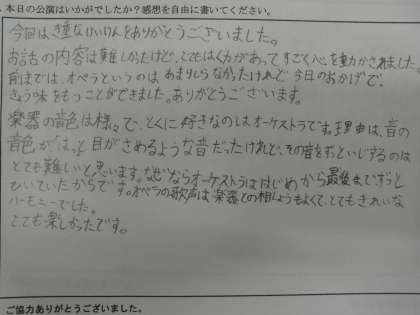 本日の公演はいかがでしたか?感想を自由に書いてください。
今回は、き重なけいけんをありがとうございました。
お話の内容は難しかったけど、とてもはく力があってすごく心を動かされました。
前までは、オペラというのはあまりしらなかったけれど今日のおかげで、
きょう味をもつことができました。ありがとうございます。
楽器の音色は様々で、とくに好きなのはオーケストラです。理由は、音の
音色がはっと目がさめるような音だったけれど、その音をずっといじするのは
とても難しいと思います。なぜならオーケストラははじめから最後まで、ずっと
ひいていたからです。オペラの歌声は、楽器との相しょうもよくて、とてもきれいな
ハーモニーでした。
とても楽しかったです。
ご協力ありがとうございました。